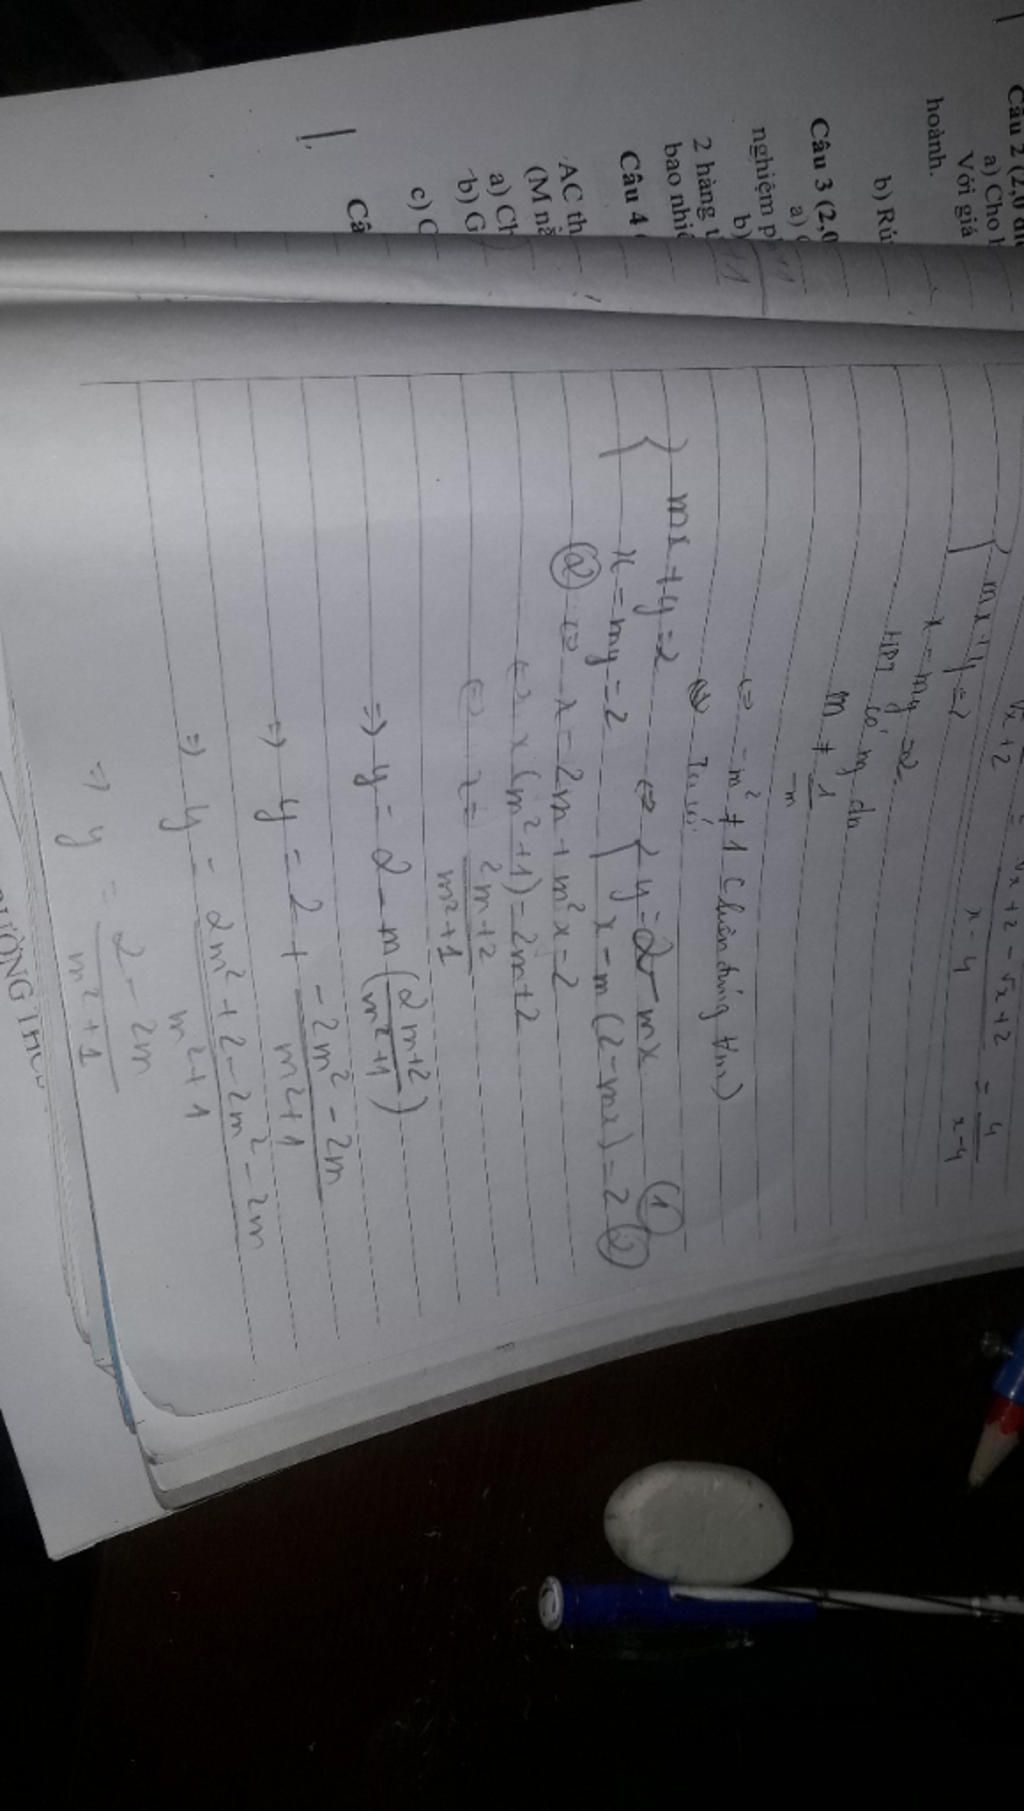 Câu 2 (2,0 đi
a) Cho h
Với giá
hoành.
b) Rú
Câu 3 (2,0
a)
nghiệm p
b)
2 hàng t
bao nhiê
Câu 4
AC th
(M nằ
a) Ch
b) G
c) C
Câ
√x + 2 - √x + 2 = 4
x - 4 x - 4
{ mx + y = 2
x - my = 2
HPT có ng dn
m ≠ 1
-m
⇔ - m² ≠ 1 (luôn đúng ∀m)
{ mx + y = 2 ⇔ { y = 2 - mx (1)
x - my = 2 x - m(2 - mx) = 2 (2)
(2) ⇔ x - 2m + m²x = 2
⇔ x(m² + 1) = 2m + 2
⇔ x = 2m + 2
m² + 1
⇒ y = 2 - m (2m + 2
m² + 1)
⇒ y = 2 + -2m² - 2m
m² + 1
⇒ y = 2m² + 2 - 2m² - 2m
m² + 1
⇒ y = 2 - 2m
m² + 1